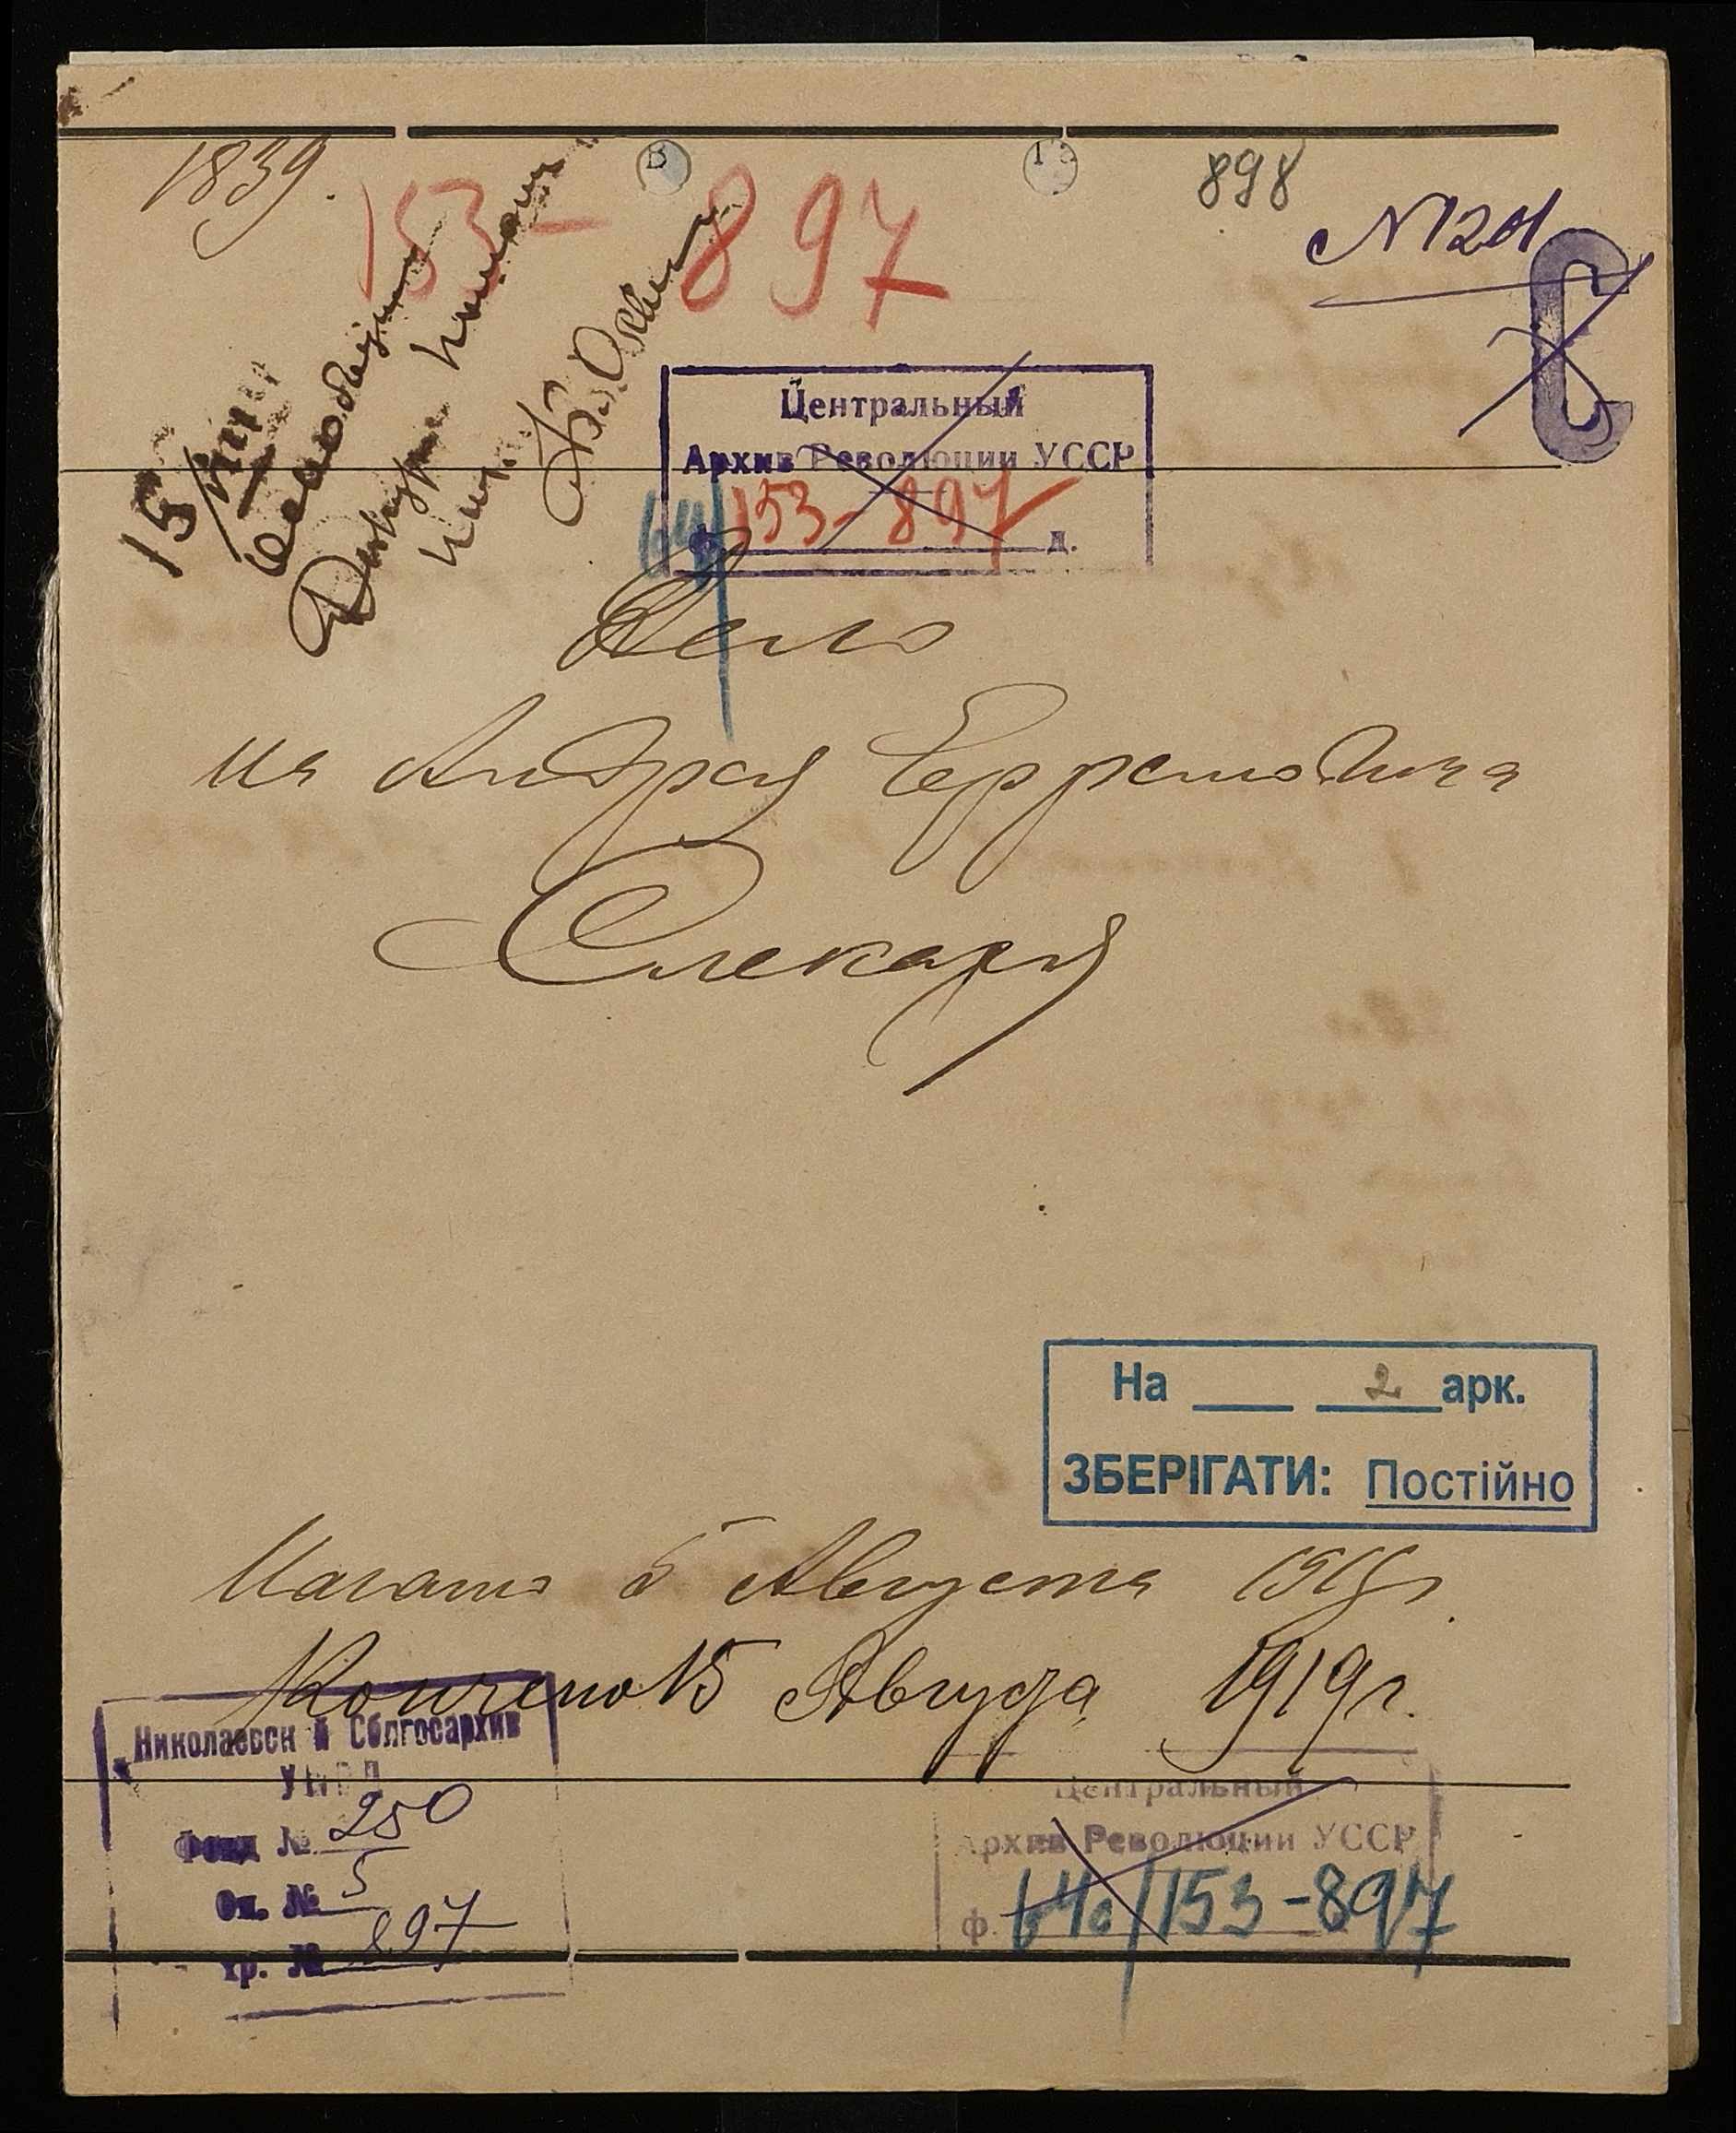 1839.
153-897
898
№ 1201
15/VIII
Центральный
Архив Революции УССР
ф. 153-897 д.
Дело
на Андрея Ефремовича
Слекаря
На 2 арк.
ЗБЕРІГАТИ: Постійно
Начато 5 Августа 1919 г.
Кончено 15 Августа 1919 г.
Николаевский Облгосархив
Фонд № 250
Оп. № 5
хр. № 897
Центральный
Архив Революции УССР
ф. 153-897